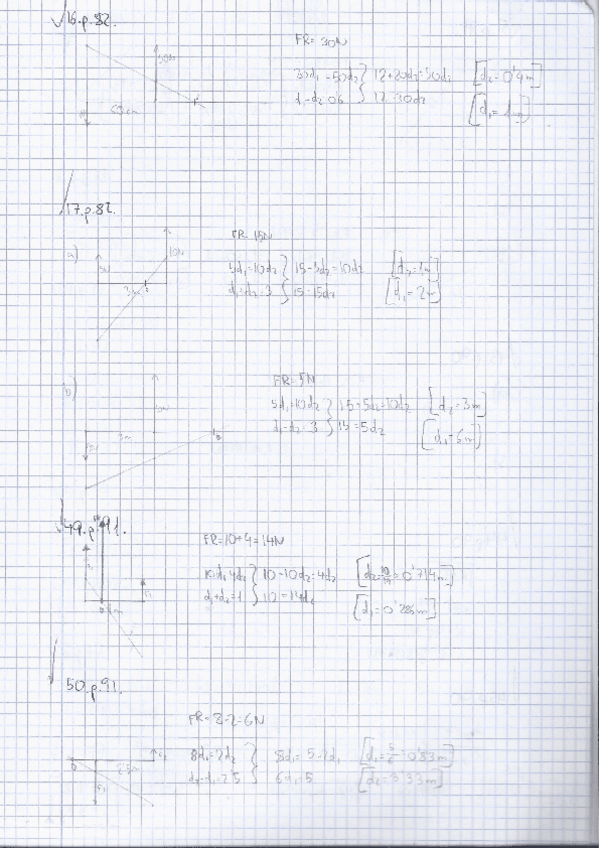 16.p.82.
FR= 30N
50N
20d1=50d2 } 12+20d2=50d2 [d2=0'4m]
d1-d2=0'6 } 12=30d2 [d1=1m]
60cm
17.p.82.
a)
FR=15N
10N
5N
5d1=10d2 } 15-5d2=10d2 [d2=1m]
d1+d2=3 } 15=15d2 [d1=2m]
3m
b)
FR=5N
5d1=10d2 } 15+5d2=10d2 [d2=3m]
d1-d2=3 } 15=5d2 [d1=6m]
3m
49.p.91.
FR=10+4=14N
10d1=4d2 } 10-10d2=4d2 [d2=10/14=0'714m]
d1+d2=1 } 10=14d2 [d1=0'285m]
1m
50.p.91.
FR=8-2=6N
8d1=2d2 } 8d1=5+2d1 [d1=5/6=0'83m]
d2-d1=2'5 } 6d1=5 [d2=3'33m]
2'5m